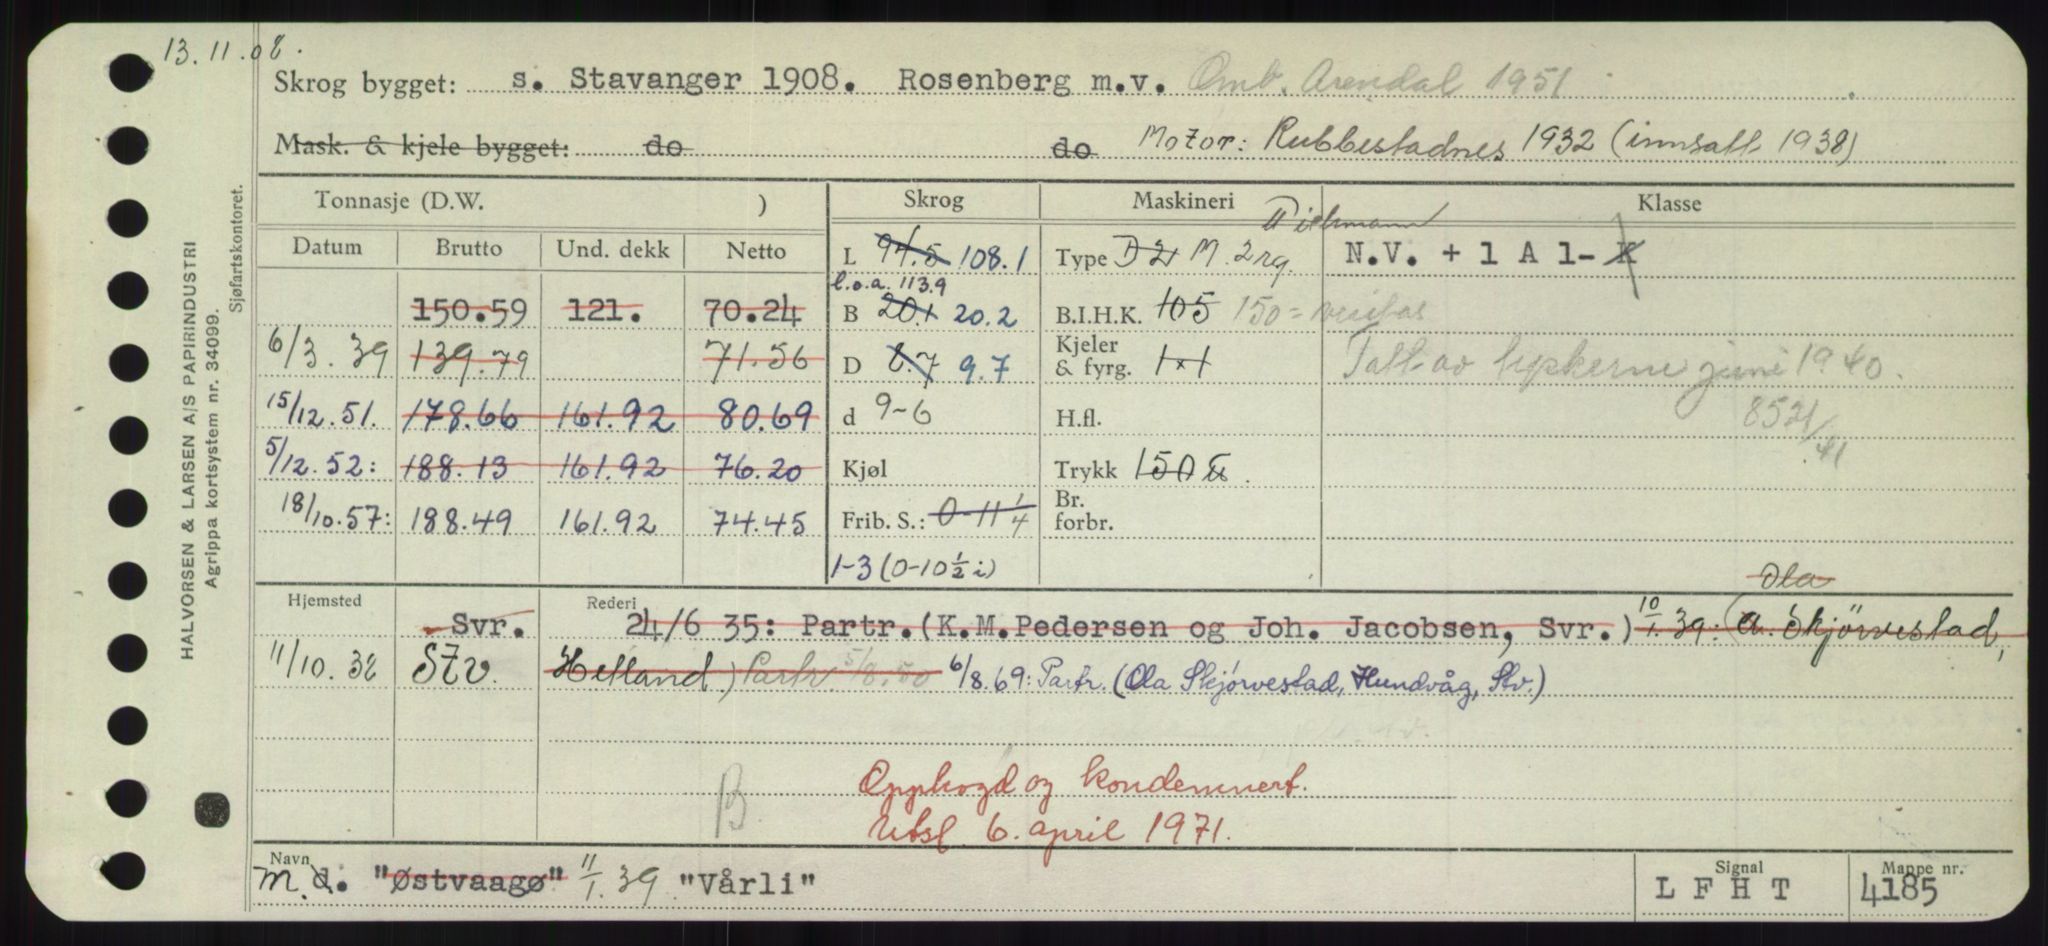 13.11.08.
Skrog bygget: s. Stavanger 1908. Rosenberg m.v. Omb. Arendal 1951
Mask. & kjele bygget: do do Motor: Rubbestadnes 1932 (innsatt 1938)
Tonnasje (D.W. ) Skrog Maskineri Klasse
Datum Brutto Und. dekk Netto
L 94.5 108.1 Type D 2 M. 2 rg. N.V. + 1 A 1- K
l.o.a. 113.9
150.59 121. 70.24 B 20.1 20.2 B.I.H.K. 105 150 =
6/3.39 139.79 71.56 D 8.7 9.7 Kjeler & fyrg. 1×1 Tatt av tyskerne juni 1940.
15/12.51. 178.66 161.92 80.69 d 9-6 H.fl. 8521/41
5/12.52: 188.13 161.92 76.20 Kjøl Trykk 150
18/10.57: 188.49 161.92 74.45 Frib. S.: 0-11 1/4 Br. forbr.
1-3 (0-10 1/2 i)
Ola
Hjemsted Svr. Rederi 24/6 35: Partr.(K.M.Pedersen og Joh. Jacobsen, Svr.) 10/1.39: (A. Skjørvestad,
11/10.38 Stv. Hetland) Partr. 5/8.50 6/8.69: Partr. (Ola Skjørvestad, Hundvåg, Stv.)
B. Opphogd og kondemnert.
Utsl. 6. april 1971.
Navn m. d. "Østvaagø" 11/1.39 "Vårli" Signal L F H T Mappe nr. 4185
HALVORSEN & LARSEN A/S PAPIRINDUSTRI
Agrippa kortsystem nr. 34099.
Sjøfartskontoret.